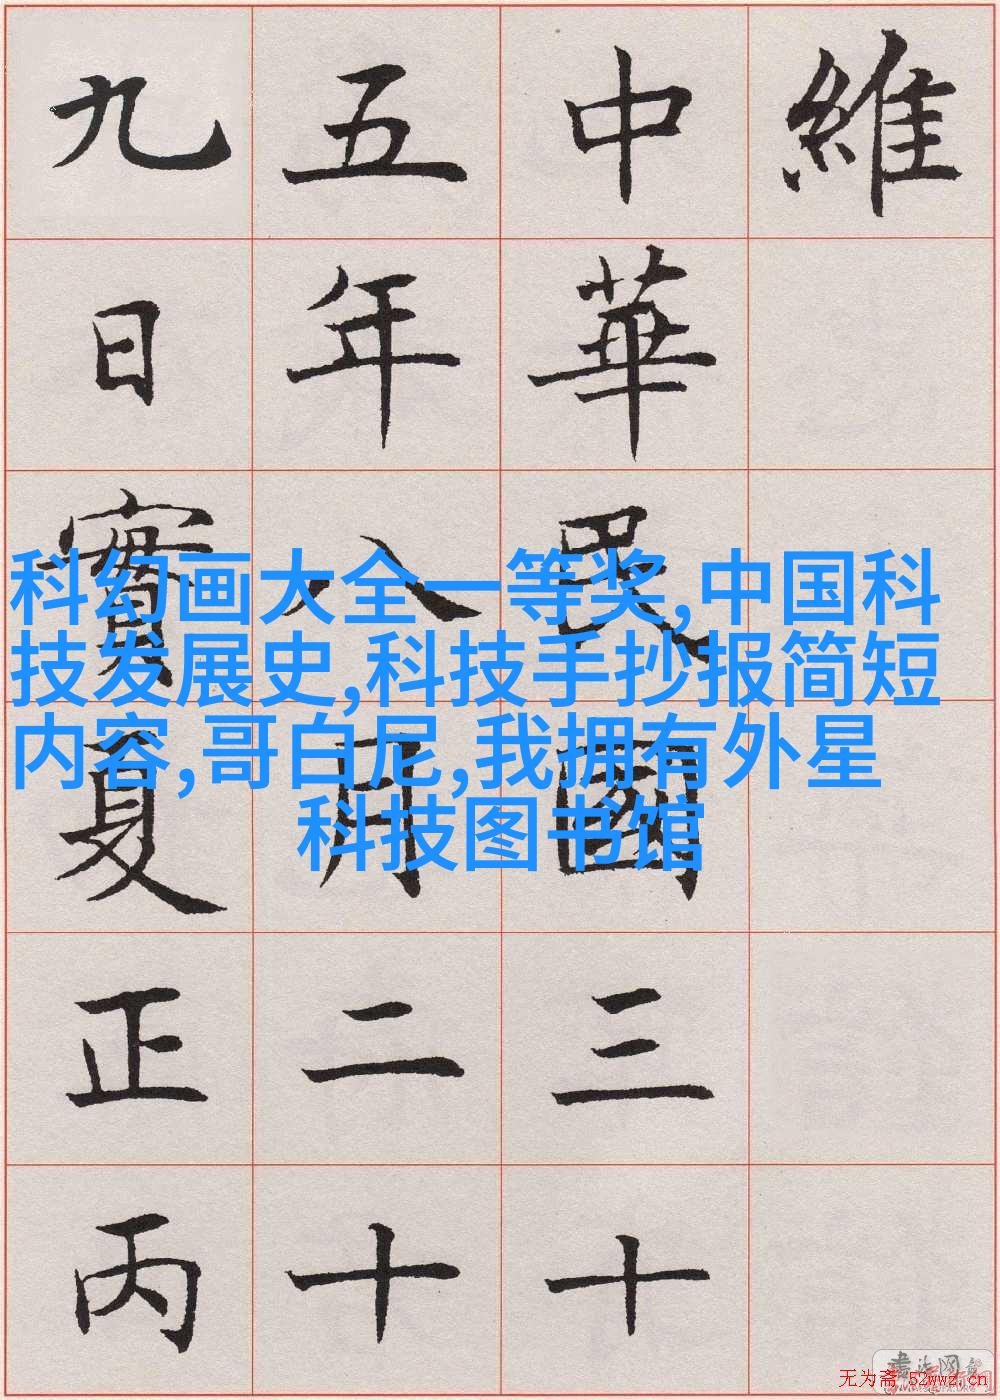 維
中華民國三十
五年八月二十
九日實夏正丙
科幻画大全一等奖,中国科
技发展史,科技手抄报简短
内容,哥白尼,我拥有外星
科技图书馆
书法网
无为斋 52wwz.cn